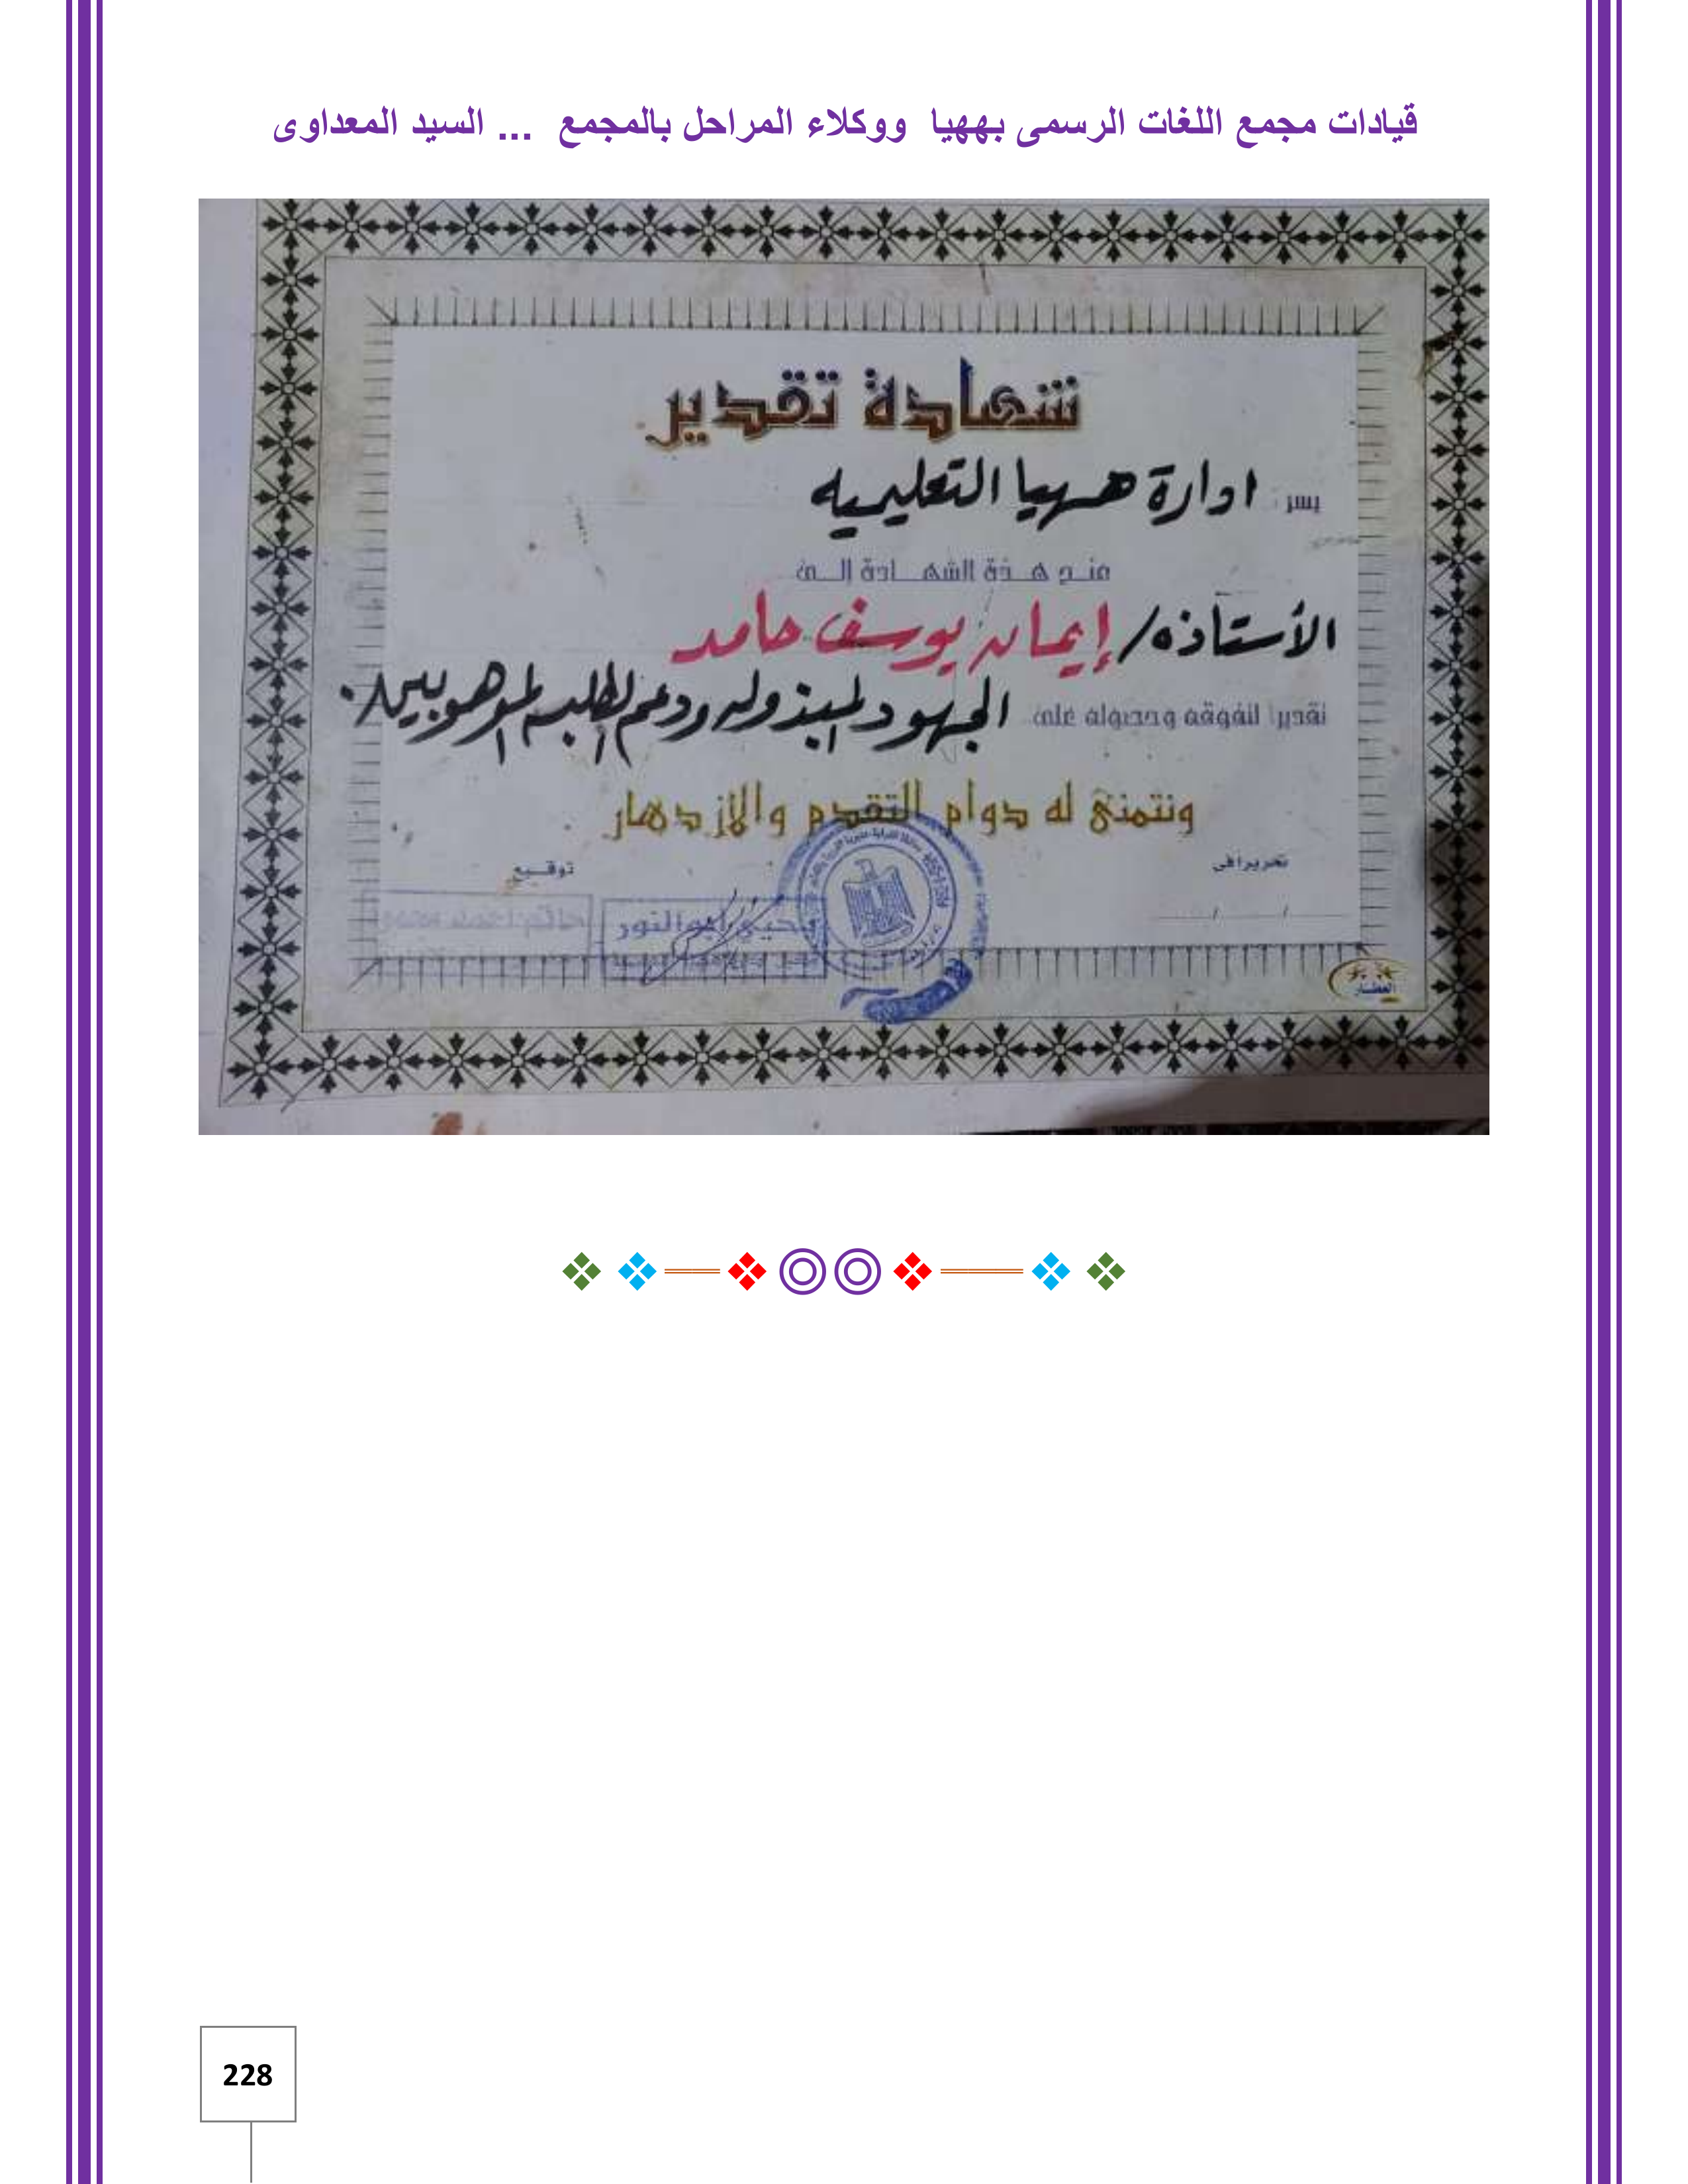 قيادات مجمع اللغات الرسمى بههيا ووكلاء المراحل بالمجمع ... السيد المعداوى
شهادة تقدير
يسر ادارة ههيا التعليميه
منح هذة الشهادة إلى
الأستاذه/ إيمان يوسف حامد
تقديرا لتفوقه وحصوله على الجهود المبذوله ودعم الطلبه الموهوبين.
ونتمنى له دوام التقدم والازدهار
تحريرا فى
توقيع
/ /
يحيى ابو النور
العطار
228